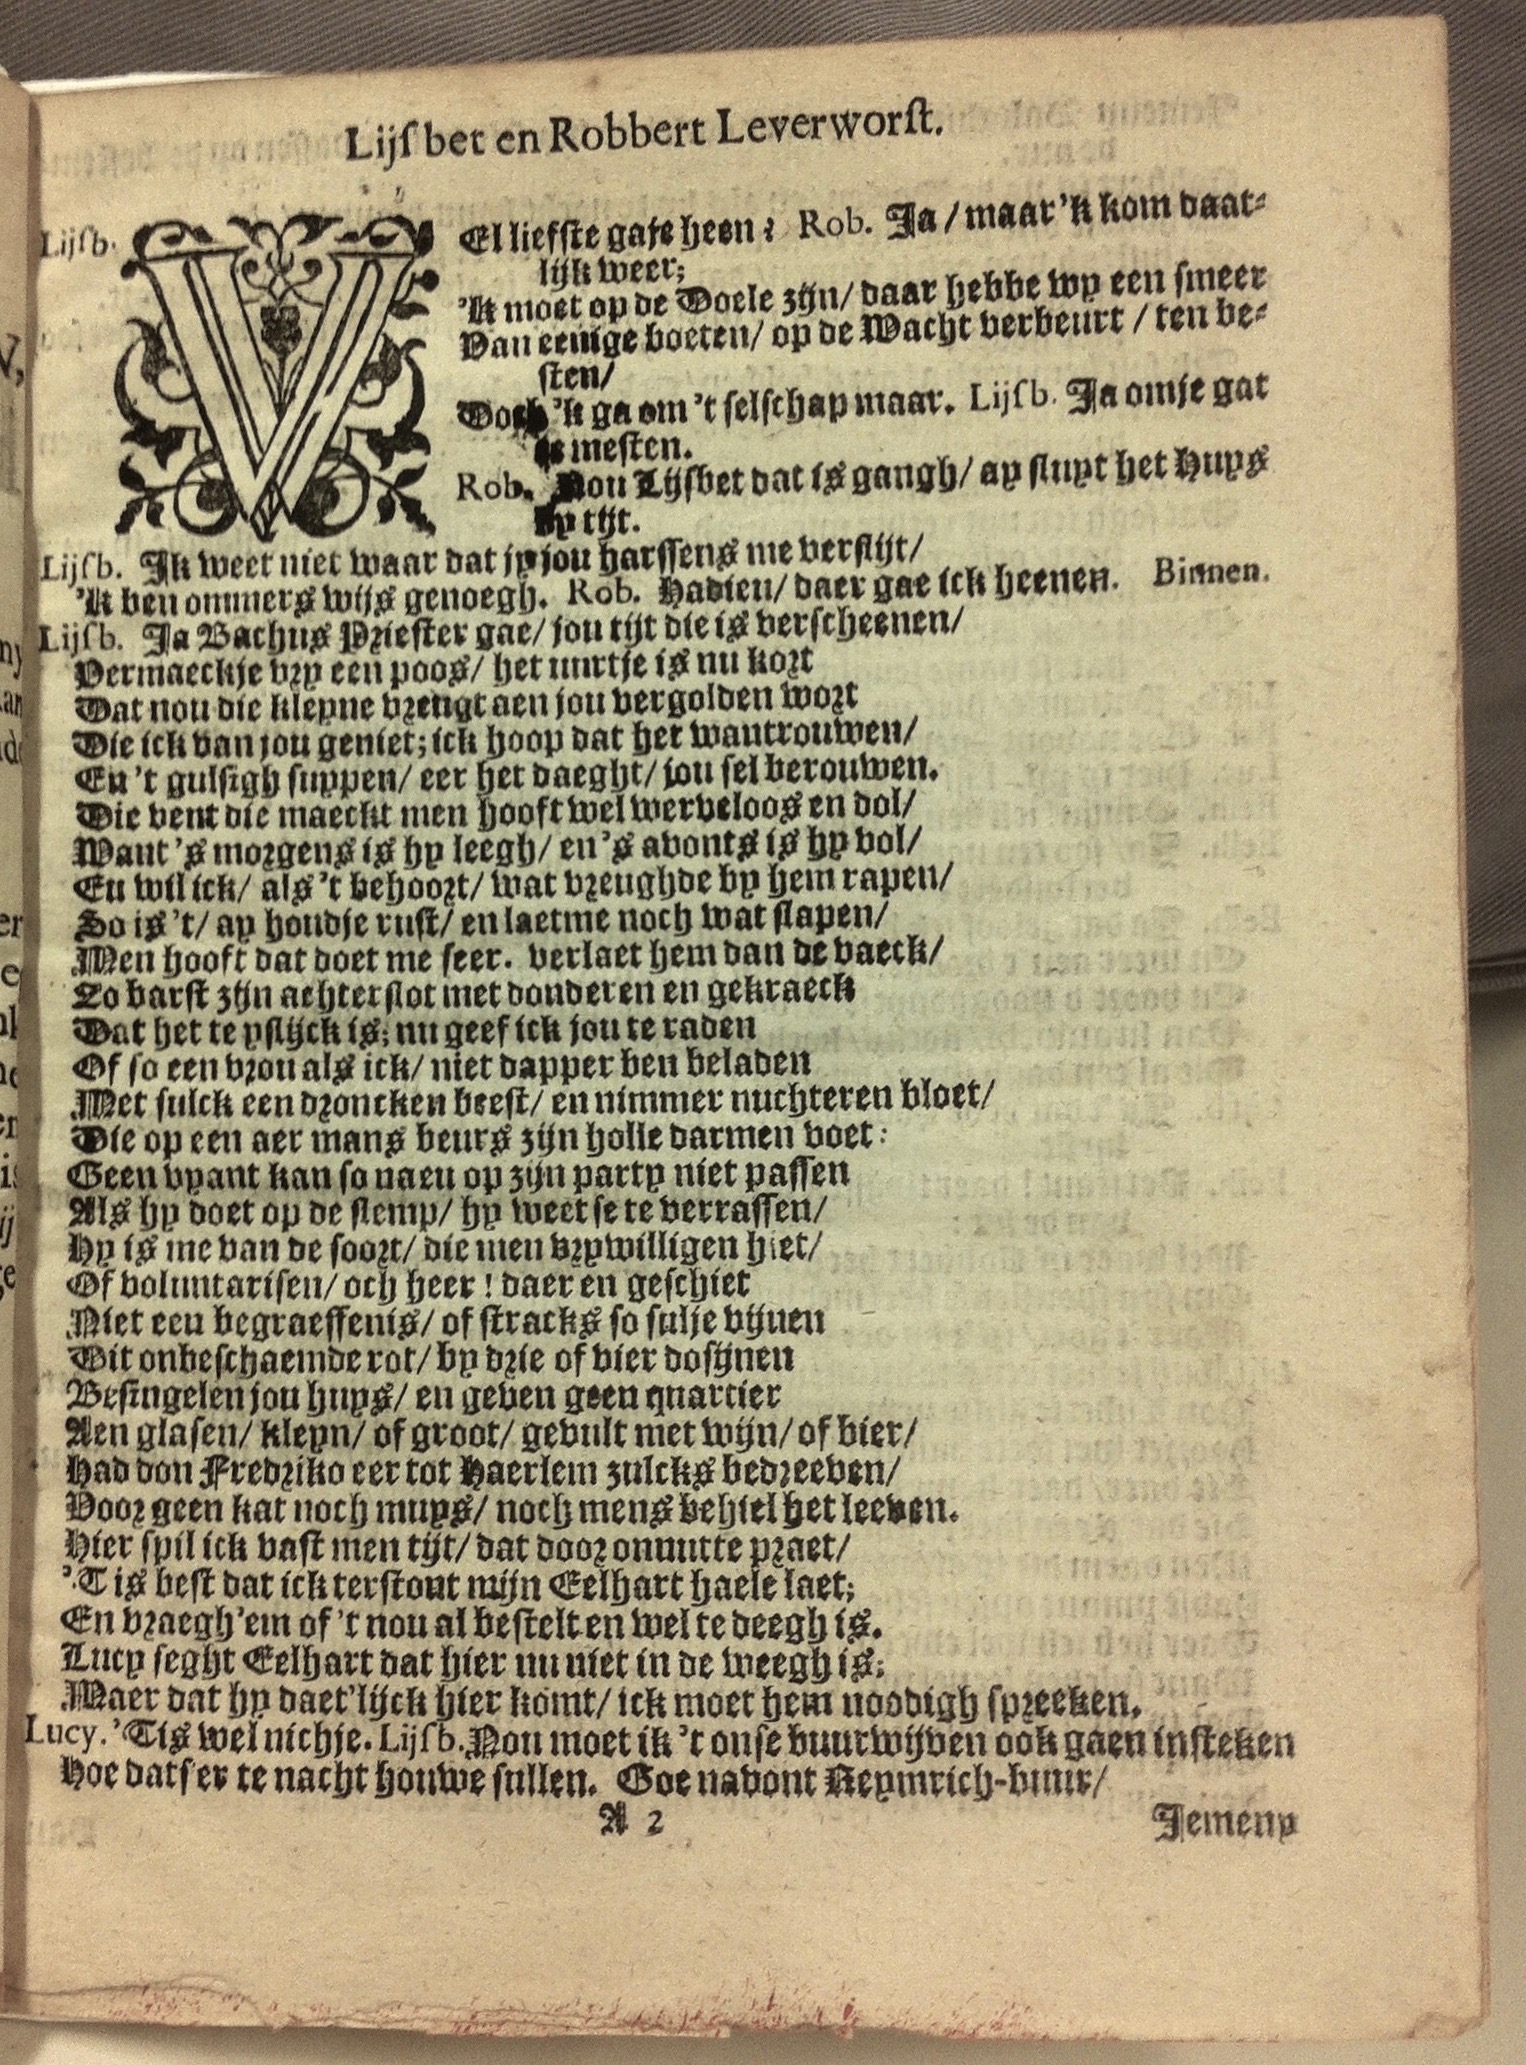 Lijsbet en Robbert Leverworst.
Lijsb. VEl liefste gaje heen? Rob. Ja / maar 'k kom daat-
lijk weer;
'k moet op de Doele zijn / daar hebbe wy een smeer
Van eenige boeten / op de Wacht verbeurt / ten be-
sten /
Doch 'k ga om 't selschap maar. Lijsb. Ja om je gat
te mesten.
Rob. Nou Lijsbet dat is gangh / ay sluyt het huys
by tijt.
Lijsb. Ik weet niet waar dat jy jou harssens me verslijt /
'k ben ommers wijs genoegh. Rob. Hadieu / daer gae ick heenen. Binnen.
Lijsb. Ja Bachus Priester gae / jou tijt die is verscheenen /
Vermaeckje vry een poos / het uurtje is nu kort
Dat nou die kleyne vreugt aen jou vergolden wort
Die ick van jou geniet; ick hoop dat het wantrouwen /
En 't gulsigh suypen / eer het daeght / jou sel berouwen.
Die vent die maeckt men hooft wel werveloos en dol /
Want 's morgens is hy leegh / en 's avonts is hy vol /
En wil ick / als 't behoort / wat vreughde by hem rapen /
So is 't / ay houdje rust / en laetme noch wat slapen /
Men hooft dat doet me seer. verlaet hem dan de vaeck /
So barst zijn achterslot met donderen en gekraeck
Dat het te yslijck is; nu geef ick jou te raden
Of so een vrou als ick / niet dapper ben beladen
Met sulck een droncken beest / en nimmer nuchteren bloet /
Die op een aer mans beurs zijn holle darmen voet:
Geen vyant kan so naeu op zijn party niet passen
Als hy doet op de slemp / hy weet se te verrassen /
Hy is me van de soort / die men vrywilligen hiet /
Of voluntarisen / och heer! daer en geschiet
Niet een begraeffenis / of stracks so sulje vijnen
Dit onbeschaemde rot / by drie of vier dosijnen
Besingelen jou huys / en geven geen quartier
Aen glasen / kleyn / of groot / gevult met wijn / of bier /
Had don Fredriko eer tot Haerlem zulcks bedreeven /
Voor geen kat noch muys / noch mens behiel het leeven.
Hier spil ick vast men tijt / dat door onnutte praet /
'T is best dat ick terstont mijn Eelhart haele laet;
En vraegh 'em of 't nou al bestelt en wel te deegh is.
Lucy seght Eelhart dat hier nu niet in de weegh is;
Maer dat hy daet'lijck hier komt / ick moet hem noodigh spreeken.
Lucy. 'Tis wel nichje. Lijsb. Nou moet ik 't onse buurwijven ook gaen insteken
Hoe datser te nacht houwe sullen. Goe navont Reymrich-buur /
A 2
Jemeny